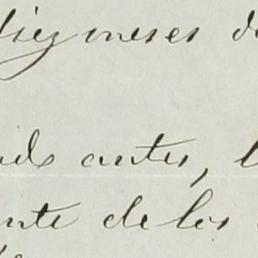 diez meses de
antes, l
ante de los